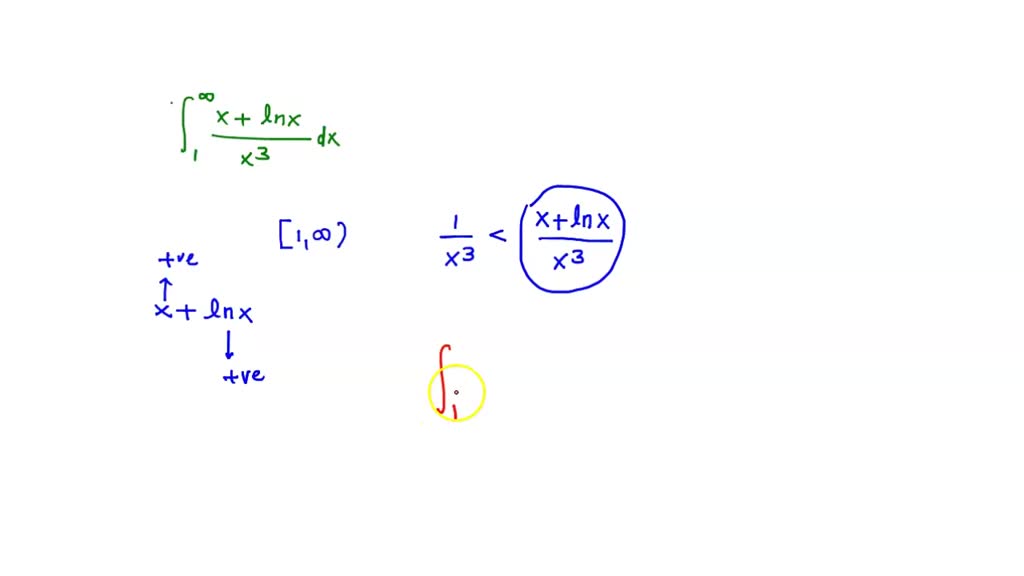 ∫₁^∞ (x + ln x)/x³ dx
[1, ∞)
1/x³ < (x + ln x)/x³
+ve
↑
x + ln x
↓
+ve
∫₁